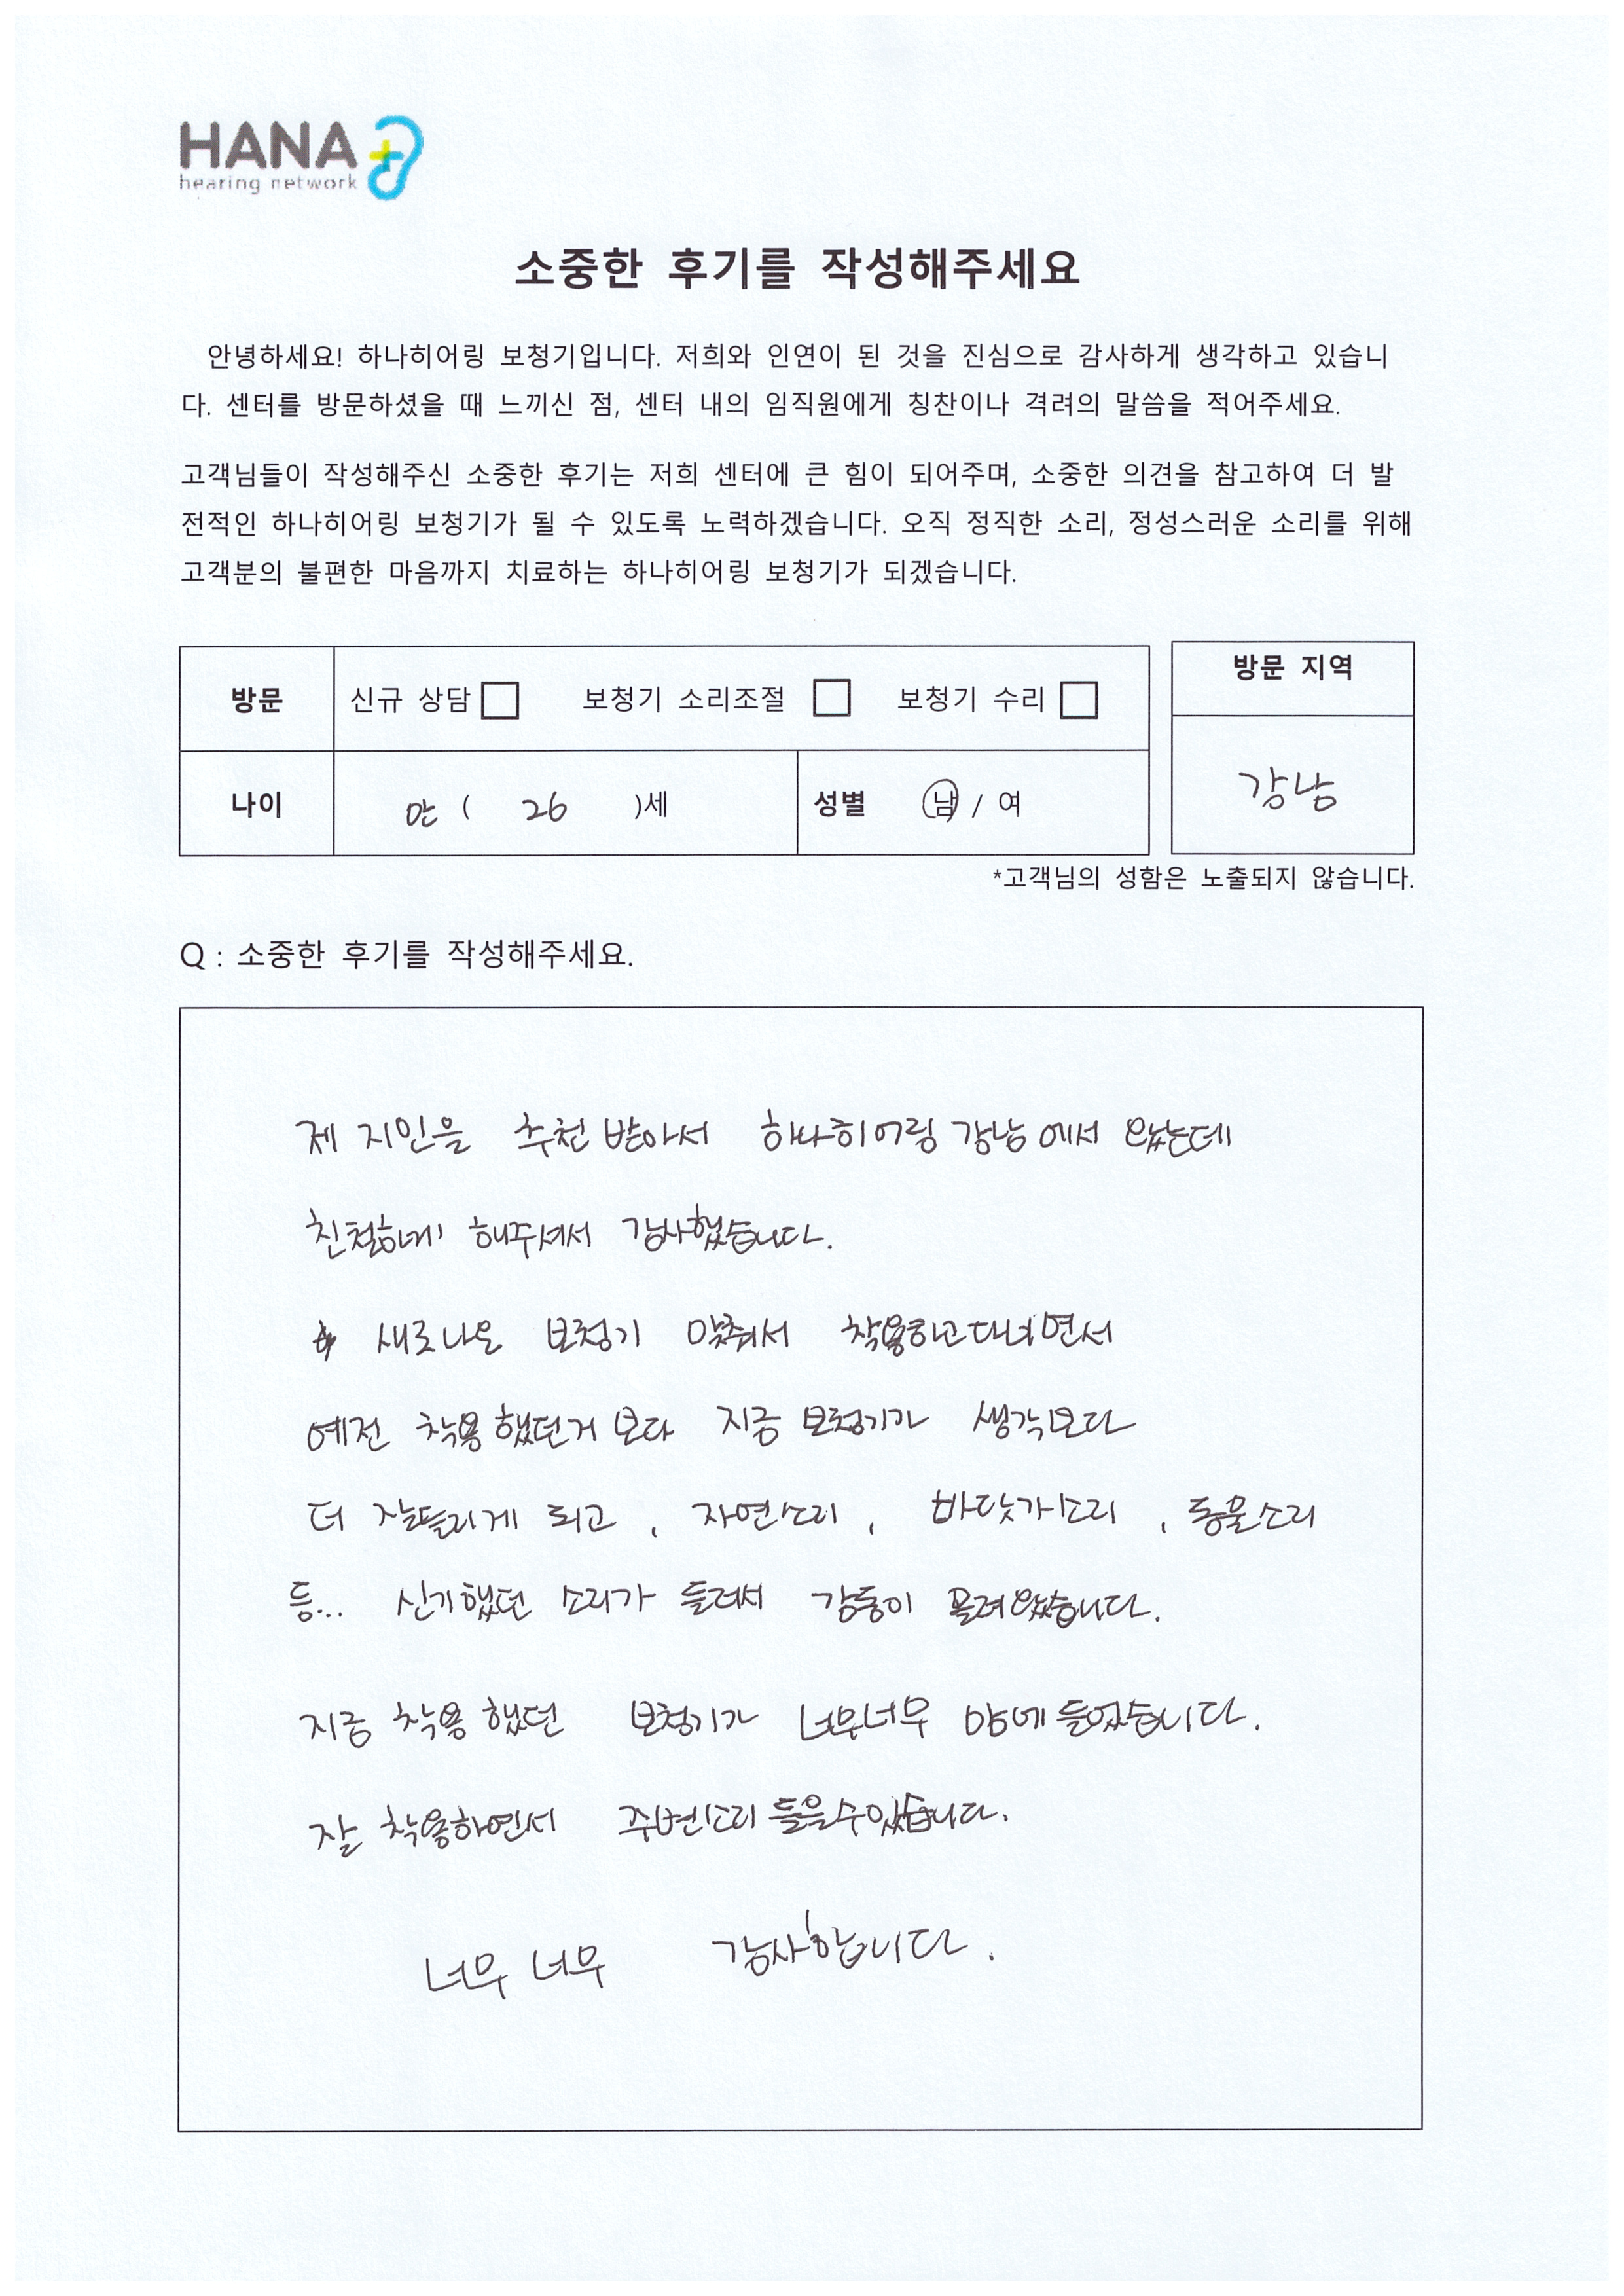 HANA
hearing network
소중한 후기를 작성해주세요
안녕하세요! 하나히어링 보청기입니다. 저희와 인연이 된 것을 진심으로 감사하게 생각하고 있습니
다. 센터를 방문하셨을 때 느끼신 점, 센터 내의 임직원에게 칭찬이나 격려의 말씀을 적어주세요.
고객님들이 작성해주신 소중한 후기는 저희 센터에 큰 힘이 되어주며, 소중한 의견을 참고하여 더 발
전적인 하나히어링 보청기가 될 수 있도록 노력하겠습니다. 오직 정직한 소리, 정성스러운 소리를 위해
고객분의 불편한 마음까지 치료하는 하나히어링 보청기가 되겠습니다.
방문 신규 상담 보청기 소리조절 보청기 수리
방문 지역
나이 만 ( 26 )세 성별 남 / 여
강남
*고객님의 성함은 노출되지 않습니다.
Q : 소중한 후기를 작성해주세요.
제 지인을 추천 받아서 하나히어링 강남에서 왔는데
친절하게 해주셔서 감사했습니다.
새로나온 보청기 맞춰서 착용하고다니면서
예전 착용했던거 보다 지금 보청기가 생각보다
더 잘들리게 되고, 자연소리, 바닷가소리, 동물소리
등... 신기했던 소리가 들려서 감동이 몰려왔습니다.
지금 착용했던 보청기가 너무너무 맘에 들었습니다.
잘 착용하면서 주변소리 들을수있습니다.
너무 너무 감사합니다.